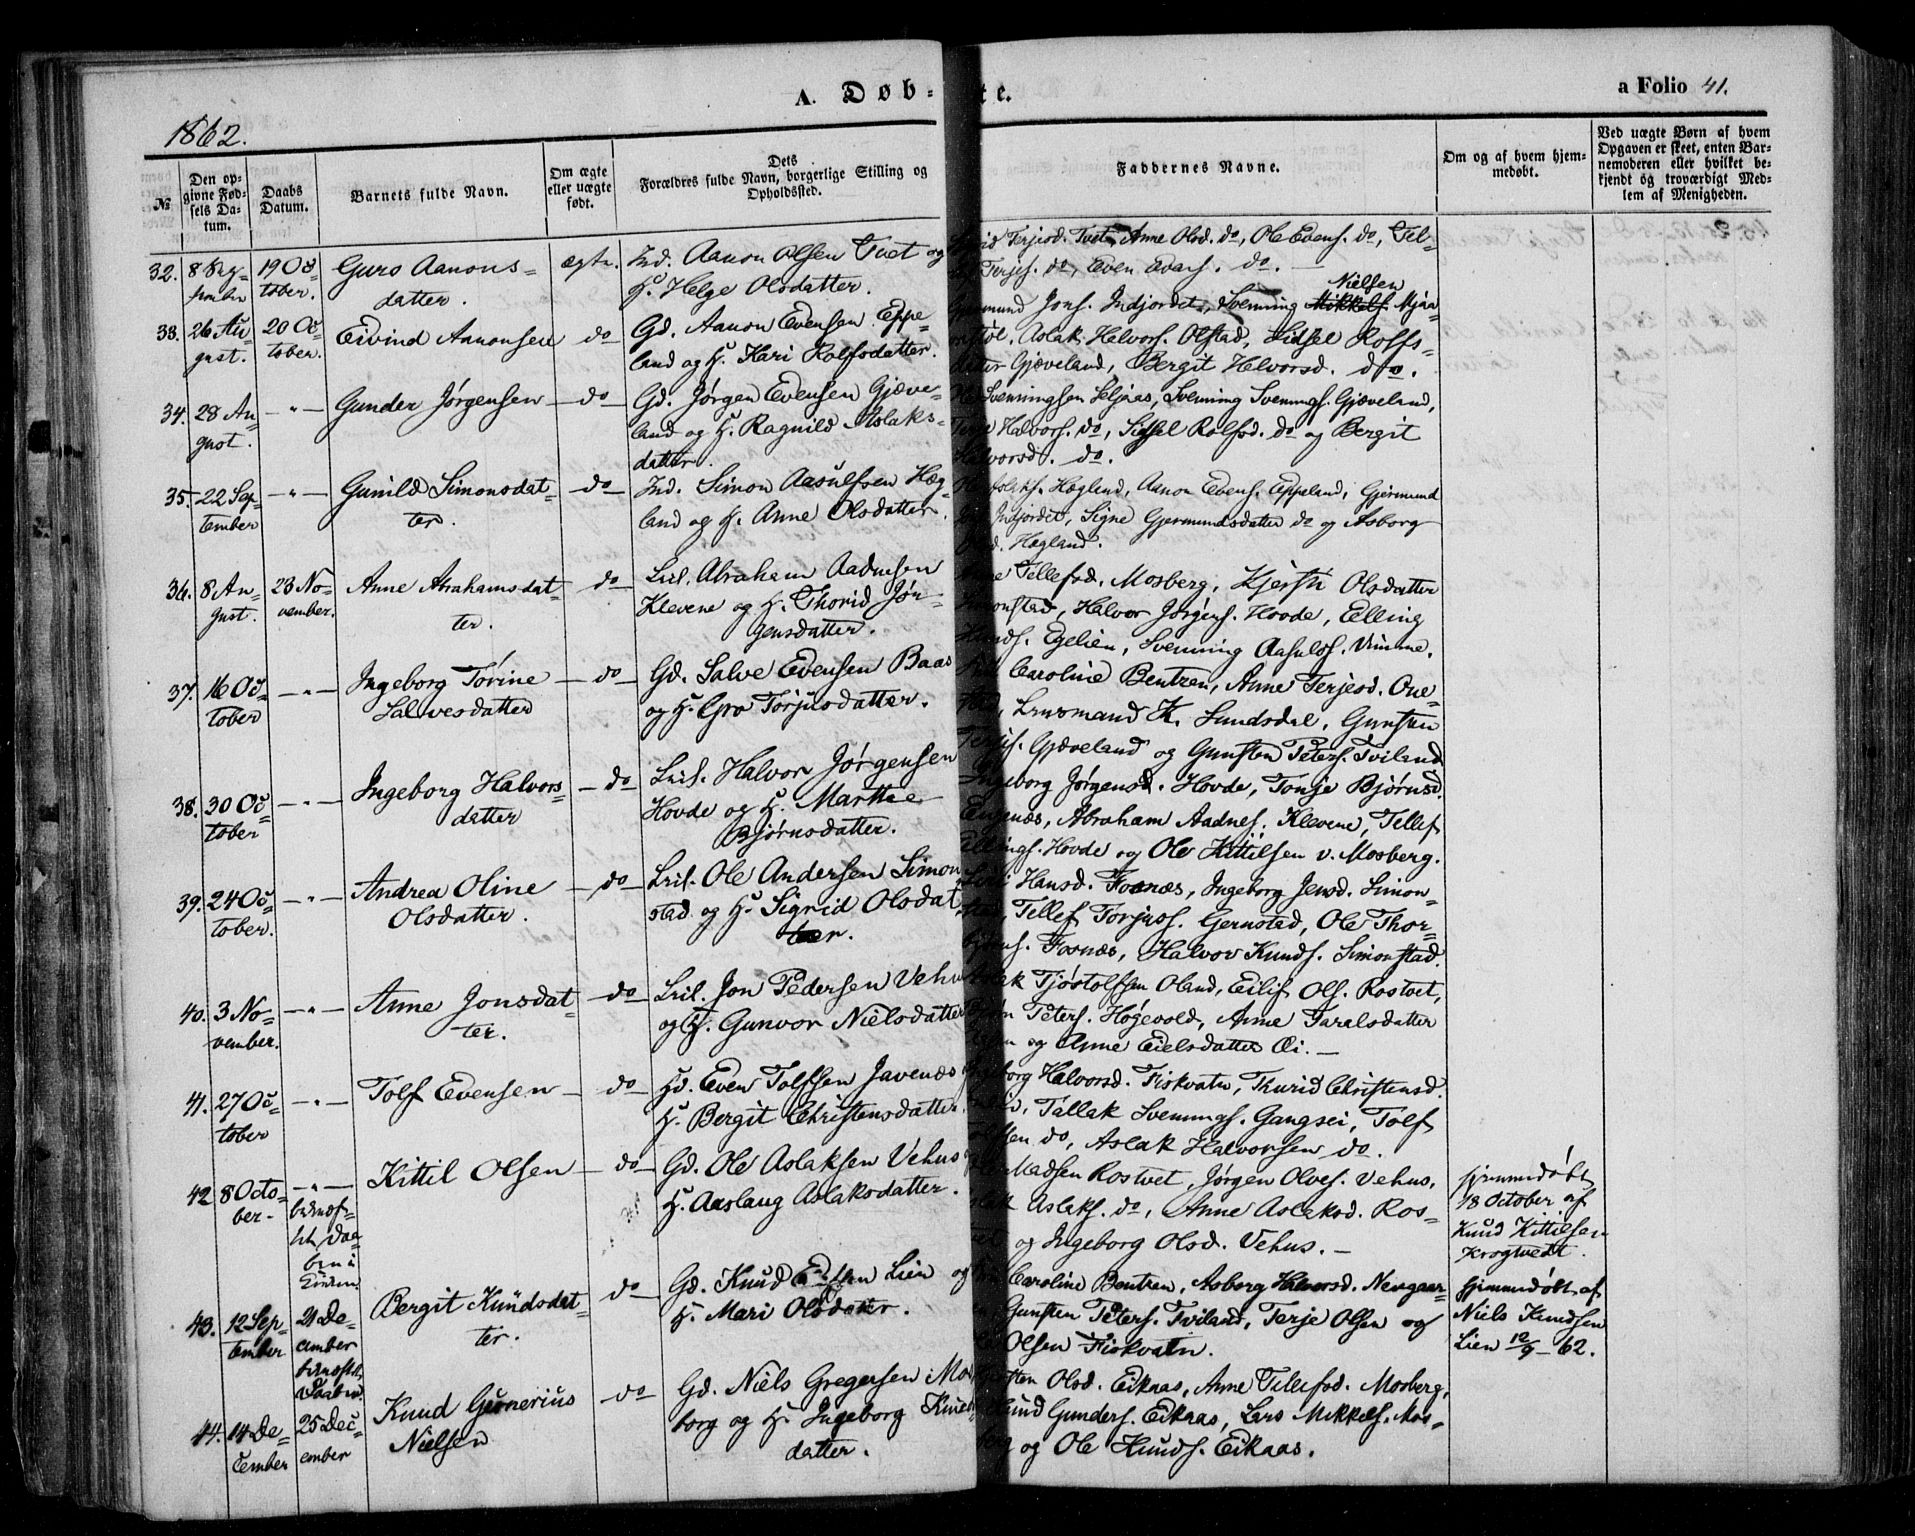 A. Døb-
te.
a Folio 41.
1862.
№
Den op-
givne Fød-
sels Da-
tum.
Daabs
Datum.
Barnets fulde Navn.
Om ægte
eller uægte
født.
Dets
Forældres fulde Navn, borgerlige Stilling og
Opholdssted.
Faddernes Navne.
Om og af hvem hjem-
medøbt.
Ved uægte Børn af hvem
Opgaven er skeet, enten Bar-
nemoderen eller hvilket be-
kjendt og troværdigt Med-
lem af Menigheden.
32. 8 Sep-
tember
19 Oc-
tober.
Guro Aanons-
datter.
ægte.
Ind. Aanon Olsen Tvet og
H. Helge Olsdatter.
Terjesd. Tvet, Anne Olsd. do, Ole Evens. do, Tel-
Terjes. do, Even Evens. do. —
33. 26 Au-
gust.
20 Oc-
tober.
Eivind Aanonsen
do
Gd. Aanon Evensen Eppe-
land og H. Kari Rolfsdatter.
Nielsen
Jons. Indjordet, Svenning Mikkels. Mjaa-
Aslak Halvors. Olstad, Sidsel Rolfs-
datter Gjæveland, Bergit Halvorsd. do.
34. 28 Au-
gust.
— " —
Gunder Jørgensen
— do —
Gd. Jørgen Evensen Gjæve-
land og H. Ragnild Aslaks-
datter.
Svenningsen Seljaas, Svenning Svennings. Gjæveland,
Terje Halvors. do, Sidsel Rolfsd. do og Bergit
Halvorsd. do.
35. 22 Sep-
tember
— " —
Gunild Simonsdat-
ter.
— do —
Ind. Simon Aasulfsen Hæg-
land og H. Anne Olsdatter.
Hægland, Aanon Evens. Eppland, Gjermund
Indjordet, Signe Gjermundsdatter do og Asborg
Hægland.
36. 8 Au-
gust.
23 No-
vember.
Anne Abrahamsdat-
ter.
do —
Lril. Abraham Aadnesen
Klevene og H. Thorid Jør-
gensdatter.
Tellefsd. Mosberg, Kjersti Olsdatter
Simonstad, Halvor Jørgens. Hovde, Elling
Knuds. Egelien, Svenning Aasulds. Vimme.
37. 16 Oc-
tober
— " —
Ingeborg Torine
Salvesdatter
— do —
Gd. Salve Evensen Baas
og H. Gro Torjusdatter.
Caroline Bentzen, Anne Terjesd. One-
Lensmand K. Sundsdal, Gunsten
Terjes. Gjæveland og Gunsten Peters. Tviland
38. 30 Oc-
tober
— " —
Ingeborg Halvors-
datter
— do
Lril. Halvor Jørgensen
Hovde og H. Marthe
Bjørnsdatter.
Ingeborg Jørgensd. Hovde, Tonje Bjørnsd.
Engenæs, Abraham Aadnes. Klevene, Tellef
Ellings. Hovde og Ole Kittilsen v. Mosberg.
39. 24 Oc-
tober.
— " —
Andrea Oline
Olsdatter.
— do
Lril. Ole Andersen Simon-
stad og H. Sigrid Olsdat-
ter.
Hansd. Fosnæs, Ingeborg Jensd. Simon-
stad, Tellef Torjuss. Gernstad, Ole Thor-
bjørns. Fosnæs, Halvor Knuds. Simonstad.
40. 3 No-
vember.
— " —
Anne Jonsdat-
ter.
— do —
Lril. Jon Pedersen Vehus
og H. Gunvor Nielsdatter
Aslak Tjøstolfsen Oland, Eilif Ols. Rostvet,
Peters. Høgevold, Anne Taralsdatter
og Anne Eielsdatter Øi. —
41. 27 Oc-
tober
— " —
Tolf Evensen —
do —
Hd. Even Tolfsen Javenæs
H. Bergit Christensdatter.
Ingeborg Halvorsd. Fiskvatn, Thurid Christensd.
Tallak Svennings. Gangsei, Tolf
Tolfsen do, Aslak Halvorsen do.
42 8 Octo-
ber. —
— " —
Daa-
ben i
Kirken
Kittil Olsen
— do —
Gd. Ole Aslaksen Vehus
H. Aaslaug Aslaksdatter.
Madsen Rostvet, Jørgen Olves. Vehus,
Aslaks. do, Anne Aslaksd. Ros-
og Ingeborg Olsd. Vehus. —
hjemmedøbt
18 October af
Knud Kittilsen
Krogtvedt.
43. 12 Sep-
tember
21 De-
cember
Daaben.
Bergit Knudsdat-
ter.
do —
Gd. Knud Lien og
H. Mari Olsdatter.
Caroline Bentzen, Asborg Halvorsd. Neugaar-
Gunsten Peters. Tviland, Terje Olsen og
Olsen Fiskvatn.
Hjemmedøbt af
Niels Knudsen
Lien 12/9 – 62.
44. 14 De-
cember
25 Dec-
ember
Knud Gunerius
Nielsen
do —
Gd. Niels Gregersen Mos-
borg og H. Ingeborg Knuds-
datter.
Olsd. Eikaas, Anne Tellefsd. Mosberg,
Gunders. Eikaas, Lars Mikkels. Mos-
berg og Ole Knuds. Eikaas.